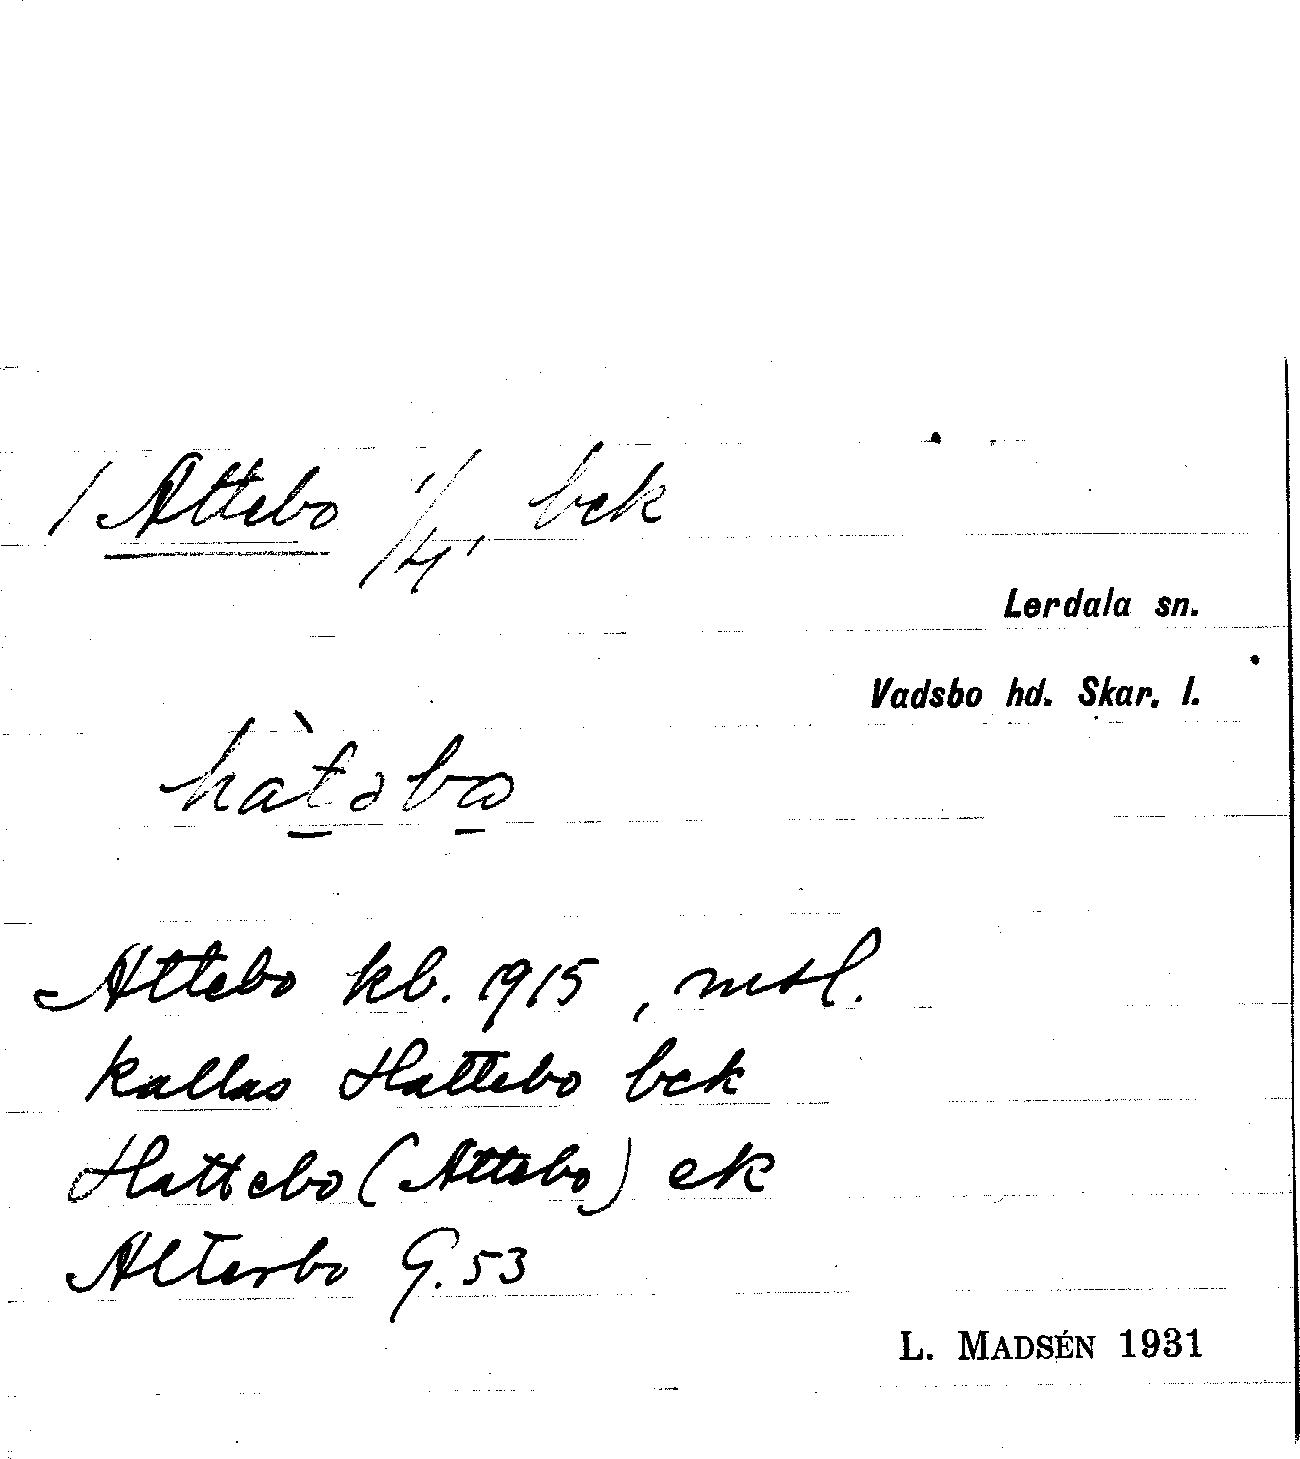 1 Attebo 1/4 bck
Lerdala sn.
Vadsbo hd. Skar. l.
hàtəbo
Attebo kb. 1915, mtl.
kallas Hattebo bck
Hattebo (Attebo) ek
Alterbo G. 53
L. MADSÉN 1931